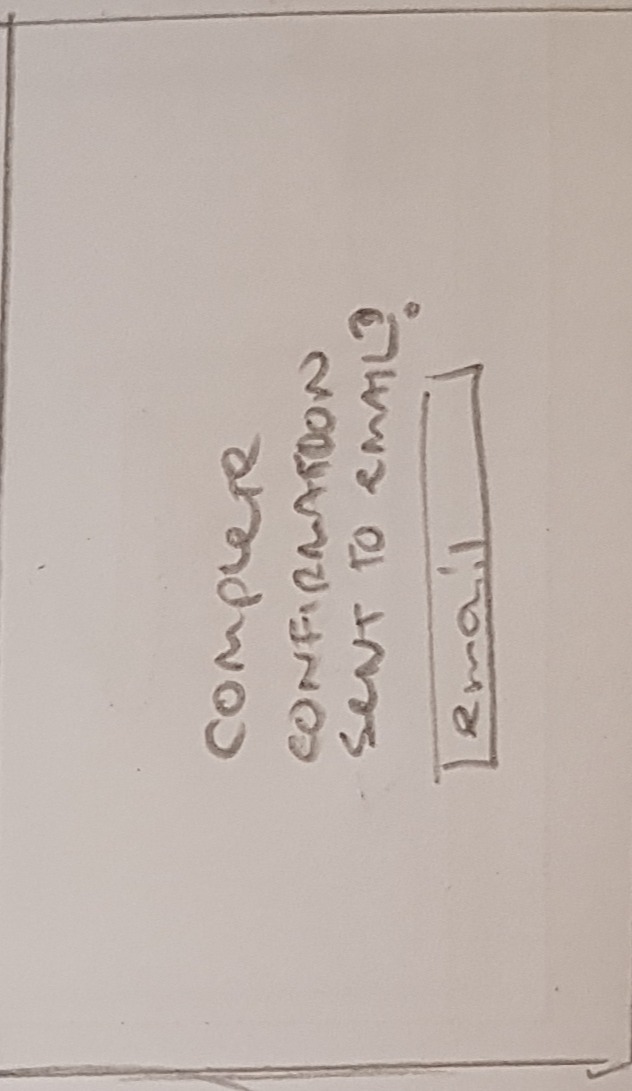 COMPLETE
CONFIRMATION
SENT TO EMAIL?
email